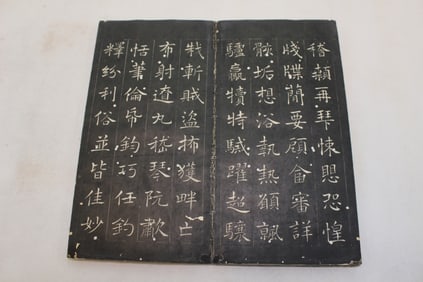 稽顙再拜悚愳恐惶
牋牒簡要顧畣審詳
骸垢想浴執熱願䬙
驢驘犢特駭躍超驤
誅斬賊盜捕獲畔亡
布射遼丸嵇琴阮歗
恬筆倫帋鈞巧任釣
釋紛利俗並皆佳妙